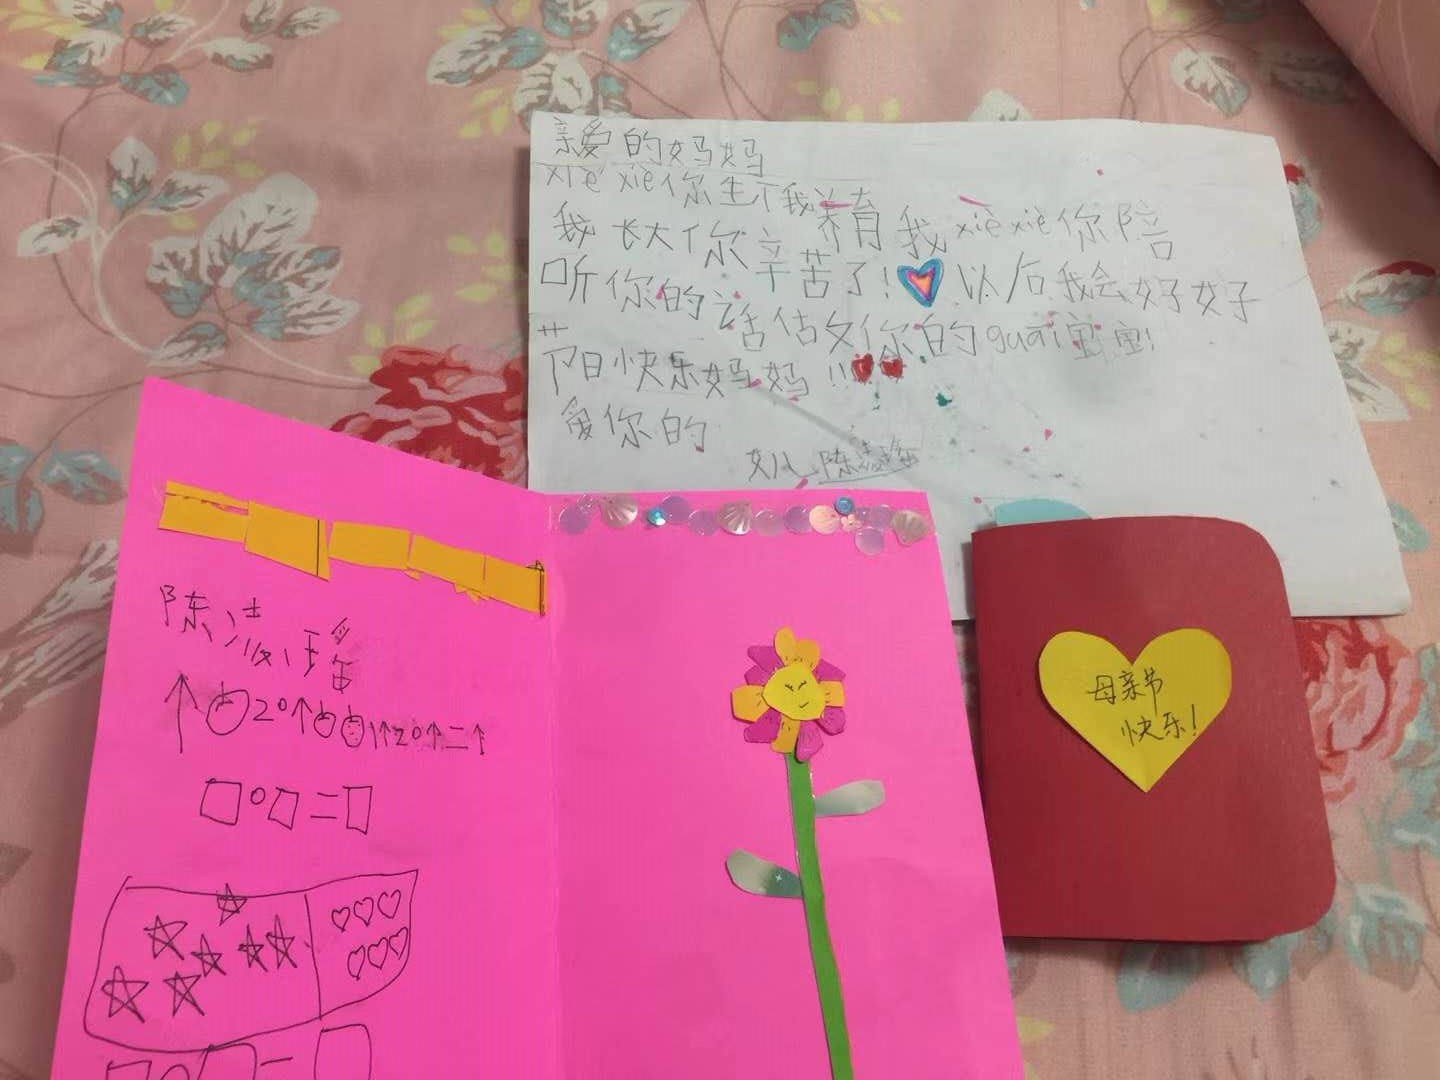 亲爱的妈妈
xiè xiè你生下我养育我xiè xiè你陪
我长大你辛苦了!以后我会好好
听你的话做你的guāi宝宝!
节日快乐妈妈!!
爱你的
女儿 陈
陈
母亲节
快乐!